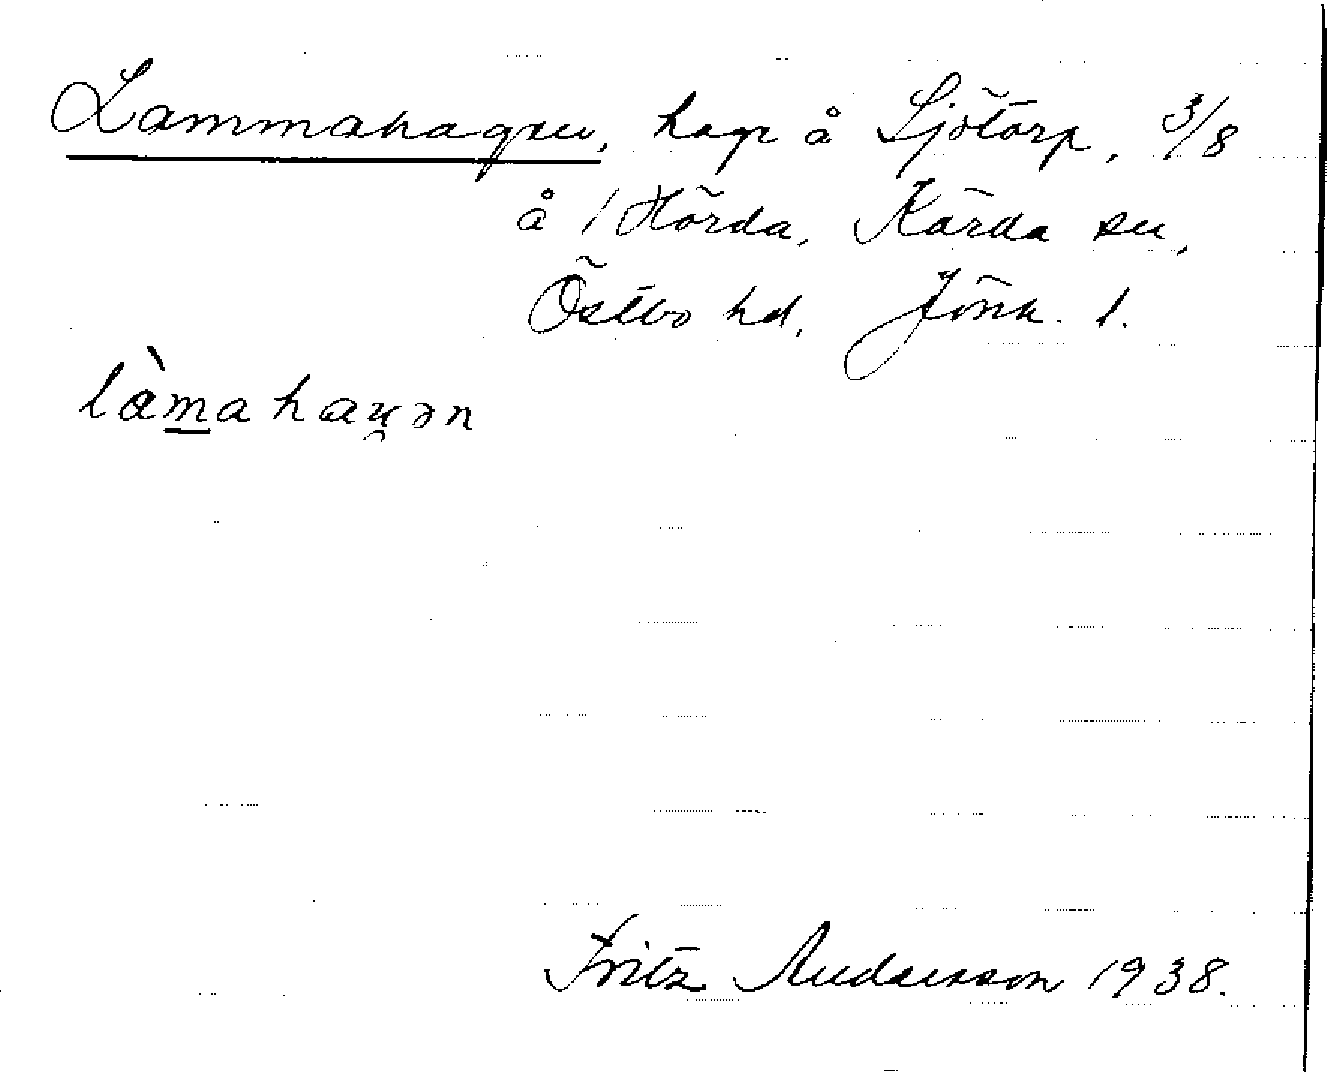 Lammahagen, hage å Sjötorp, 3/8
å 1 Hörda, Kärda sn,
Östbo hd, Jönk. l.
làmahaꭓən
Fritz Andersson 1938.